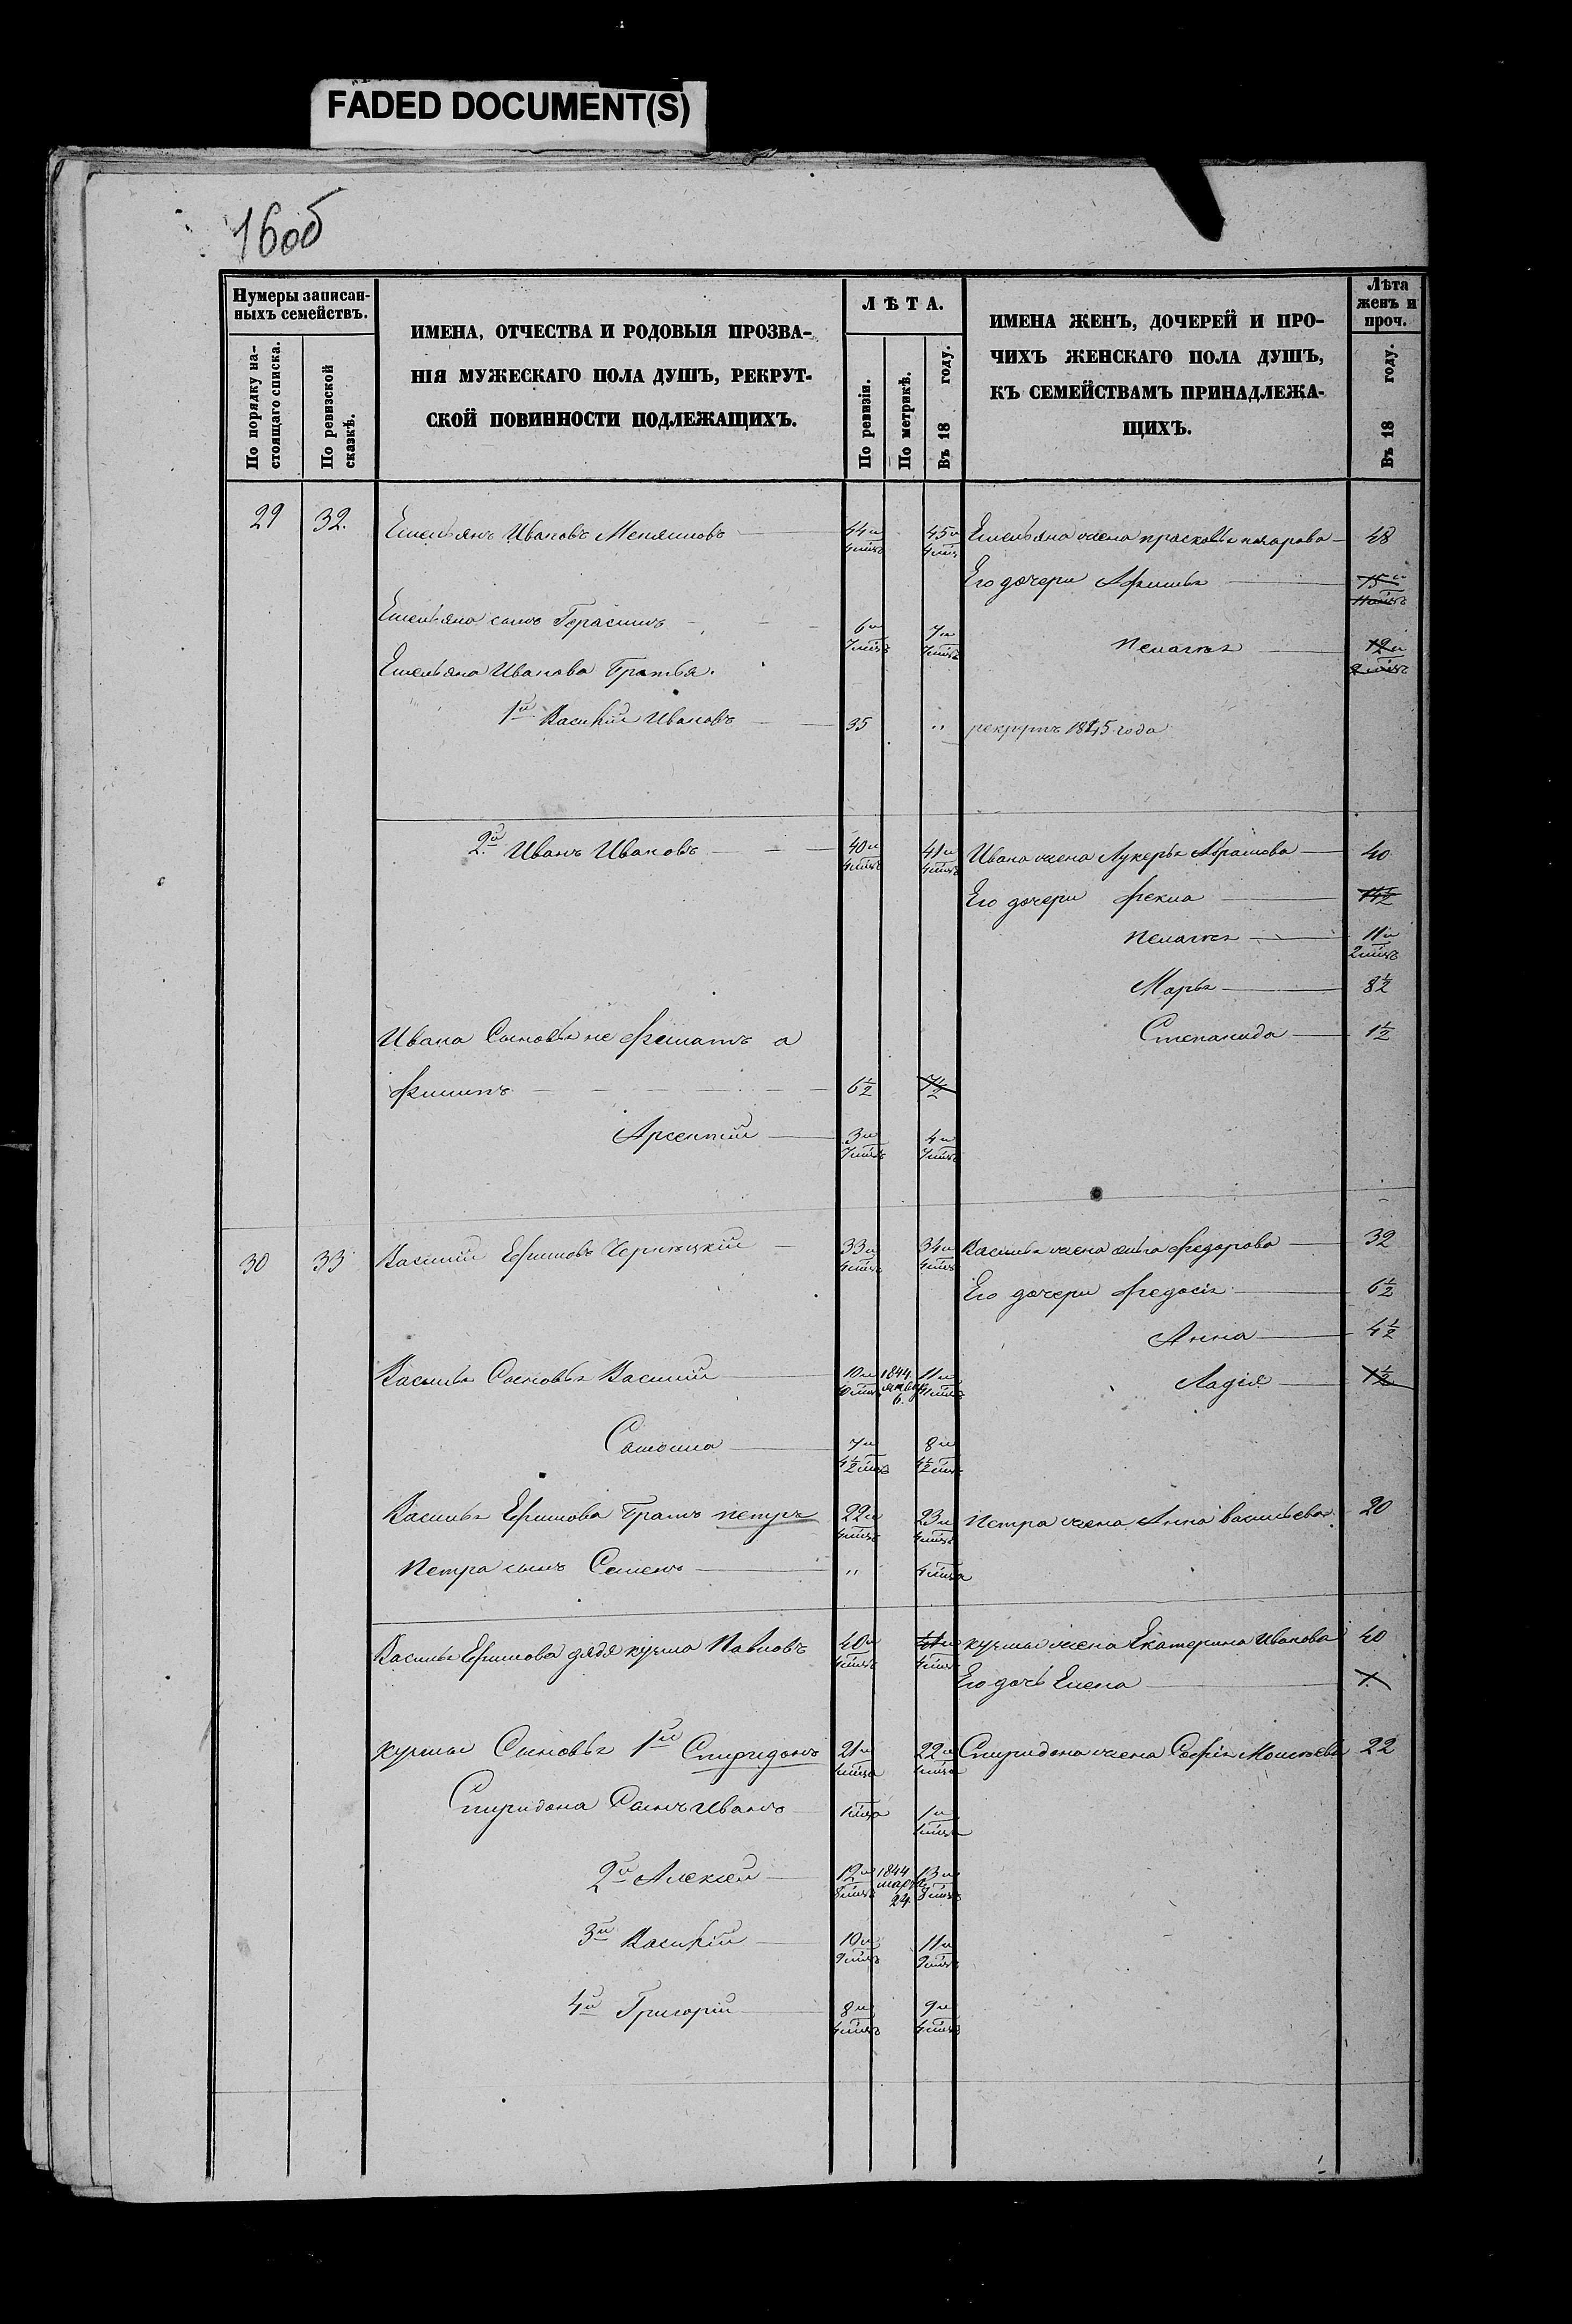 FADED DOCUMENT(S)
16об
Нумеры записан-
ныхъ семействъ.
По порядку на-
стоящаго списка.
По ревизской
сказкѣ.
ИМЕНА, ОТЧЕСТВА И РОДОВЫЯ ПРОЗВА-
НІЯ МУЖЕСКАГО ПОЛА ДУШЪ, РЕКРУТ-
СКОЙ ПОВИННОСТИ ПОДЛЕЖАЩИХЪ.
ЛѢТА.
По ревизіи.
По метрикѣ.
Въ 18 году.
ИМЕНА ЖЕНЪ, ДОЧЕРЕЙ И ПРО-
ЧИХЪ ЖЕНСКАГО ПОЛА ДУШЪ,
КЪ СЕМЕЙСТВАМЪ ПРИНАДЛЕЖА-
ЩИХЪ.
Лѣта
женъ и
проч.
Въ 18 году.
29 32. Емельянъ Ивановъ 44 и 4 мѣся 45 и 4 мѣся Емельяна жена прасковья 48
Его дочери Афимья 15 и 11 мѣся
Емельяна сынъ Герасимъ 6 и 7 мѣся 7 и 7 мѣся
Пелагея 12 и 2 мѣся
Емельяна Иванова Братья.
1й Василій Ивановъ 35 " рекрутъ 1845 года
2й Иванъ Ивановъ 40 и 4 мѣся 41 и 4 мѣся Ивана жена Лукерья Абрамова 40
Его дочери Фекла 14½
Пелагея 11 и 2 мѣся
Марья 8½
Ивана Сыновья не Филатъ а
Степанида 1½
Филипъ 6½ 7½
Арсентій 3 и 7 мѣся 4 и 7 мѣся
30 33 Василій Ефимовъ 33 и 4 мѣся 34 и 4 мѣся Василья жена Федорова 32
Его дочери Федосья 6½
Анна 4½
Василья Сыновья Василій 10 и 1844 6. 11 и
1½
7 и 4½ мѣся 8 и 4½ мѣся
Василья Ефимова Братъ петръ 22 и 4 мѣся 23 и 4 мѣся Петра жена Анна васильева 20
Петра сынъ Семенъ " 4 мѣся
Василья Ефимова дядя кузма Павловъ 40 и 4 мѣся 41 и 4 мѣся кузмы жена Екатерина Иванова 40
Его дочь Елена 1
кузмы Сыновья 1й Спиридонъ 21 и 22 и Спиридона жена Софья 22
Спиридона Сынъ Иванъ 1 и
2й Алексей 12 и 8 мѣся 1844 марта 24 13 и 8 мѣся
3й Василій 10 и 9 мѣся 11 и 9 мѣся
4й Григорій 8 и 4 мѣся 9 и 4 мѣся